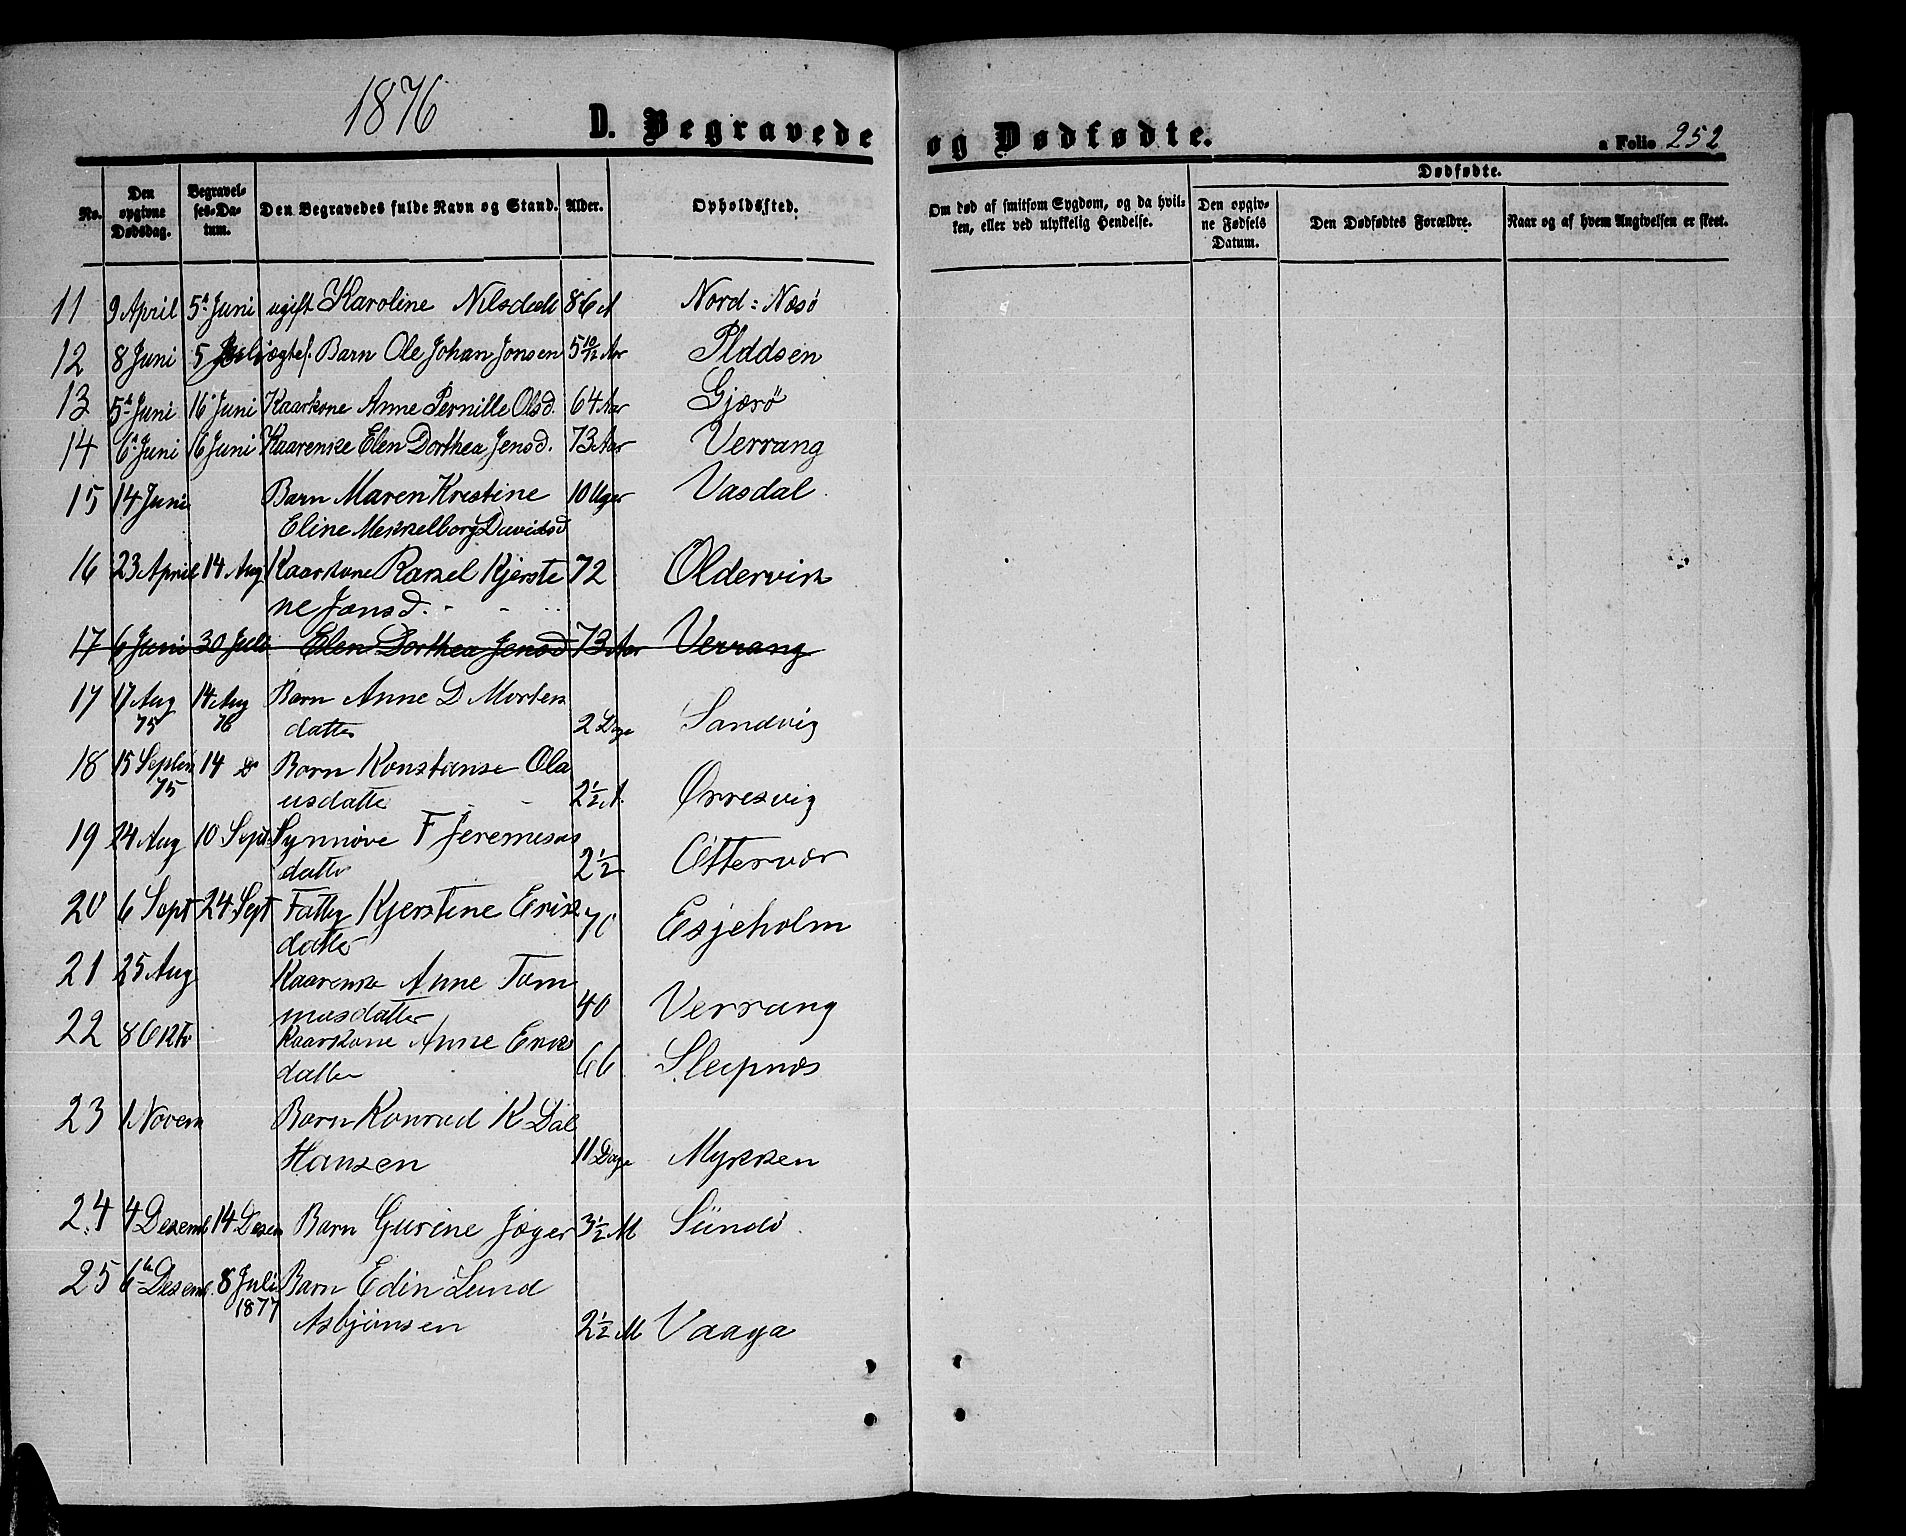 1876
D. Begravede og Dødfødte.
a Folio 252
No.
Den opgivne Dødsdag.
Begravelses-Datum.
Den Begravedes fulde Navn og Stand.
Alder.
Opholdssted.
Om død af smitsom Sygdom, og da hvilken, eller ved ulykkelig Hendelse.
Dødfødte.
Den opgivne Fødsels Datum.
Den Dødfødtes Forældre.
Naar og af hvem Angivelsen er skeet.
11 9 April 5te Juni ugift Karoline Nilsdatt 86 A Nord=Næsø
12 8 Juni 5 Juli ægtef. Barn Ole Johan Jonsen 5 10/12 Aar
13 5te Juni 16 Juni Kaarkone Anne Pernille Olsd. 64 Aar Gjærø
14 6te Juni 16 Juni Kaarenke Elen Dorthea Jensd. 73 Aar Verrang
15 14 Juni Barn Maren Kristine 10 Uger Vasdal
Eline Mekkelborg Davidsd
16 23 April 14 Aug Kaarkone Rakel Kjersti 72 Oldervik
ne Jonsd.
17 6 Juni 30 Juli Elen Dorthea Jensd 73 Aar Verrang
17 17 Aug 14 Aug Barn Anne D Morten
75 76 datter 2 Dage Sandvig
18 15 Septem 14 do Barn Konstanse Ola
75 usdatte 2 1/2 A. Ørresvig
19 24 Aug 10 Sept Synnøve F Jeremias
datter 2 1/2 Ottervær
20 6 Sept 24 Sept Fattig Kjerstine Erik 70 Esjeholm
datter
21 25 Aug Kaarenke Anne Tom
masdatter 40 Verrang
22 8 Oktr Kaarkone Anne Eriks
datter 66 Sleipnes
23 1 Novem Barn Konrad K Dal
Hansen 11 Dage Mykken
24 4 Desemb 14 Desem Barn Gurine Jæger 3 1/2 M Sundø
25 6te Desemb. 8 Juli Barn Edin Lund
1877 Asbjønsen 2 1/2 M Vaaga